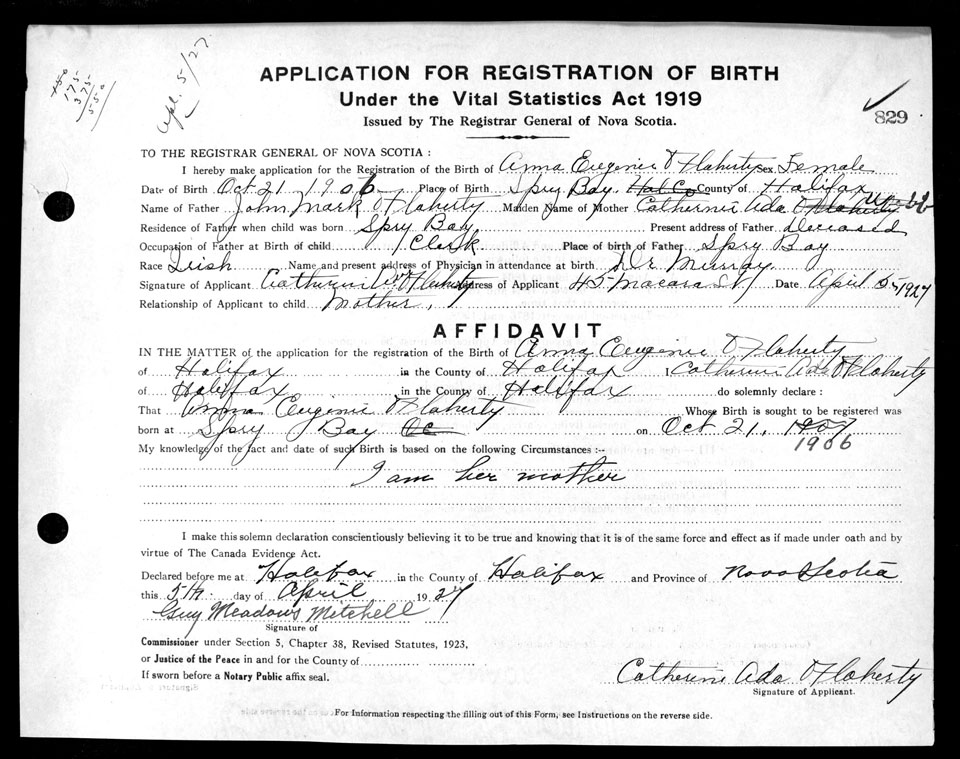 Apl. 5/27
175
375
550
APPLICATION FOR REGISTRATION OF BIRTH
Under the Vital Statistics Act 1919
Issued by The Registrar General of Nova Scotia.
829
TO THE REGISTRAR GENERAL OF NOVA SCOTIA :
I hereby make application for the Registration of the Birth of Anna Eugenie O'Flaherty Sex Female
Date of Birth Oct 21 1906 Place of Birth Spry Bay Hal Co County of Halifax
Name of Father John Mark O'Flaherty Maiden Name of Mother Catherine Ada O'Flaherty Webb
Residence of Father when child was born Spry Bay Present address of Father deceased
Occupation of Father at Birth of child Clerk Place of birth of Father Spry Bay
Race Irish Name and present address of Physician in attendance at birth Dr Murray
Signature of Applicant Catherine O'Flaherty Address of Applicant 45 Macara St Date April 5, 1927
Relationship of Applicant to child Mother,
AFFIDAVIT
IN THE MATTER of the application for the registration of the Birth of Anna Eugenie O'Flaherty
of Halifax in the County of Halifax I Catherine Ada O'Flaherty
of Halifax in the County of Halifax do solemnly declare :
That Anna Eugenie O'Flaherty Whose Birth is sought to be registered was
born at Spry Bay on Oct 21, 1907
1906
My knowledge of the fact and date of such Birth is based on the following Circumstances :--
I am her mother
I make this solemn declaration conscientiously believing it to be true and knowing that it is of the same force and effect as if made under oath and by
virtue of The Canada Evidence Act.
Declared before me at Halifax in the County of Halifax and Province of Nova Scotia
this 5th day of April 1927
Guy Meadows Mitchell
Signature of
Commissioner under Section 5, Chapter 38, Revised Statutes, 1923,
or Justice of the Peace in and for the County of
If sworn before a Notary Public affix seal.
Catherine Ada O'Flaherty
Signature of Applicant.
For Information respecting the filling out of this Form, see Instructions on the reverse side.